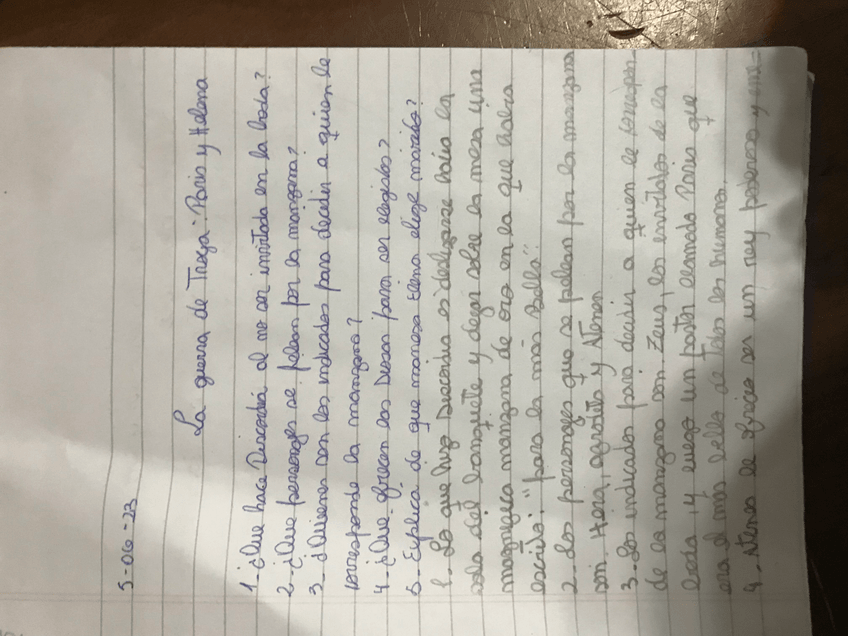 5-06-23
La guerra de Troya: Paris y Helena
1- ¿Que hace Discordia al no ser invitada en la boda?
2- ¿Que personages se pelean por la manzana?
3- ¿Quienes son los indicados para decidir a quien le
corresponde la manzana?
4- ¿Que ofrecen las Diosas para ser elegidas?
5- Explica de que manera Elena elige marido?
1- Lo que hizo Discordia es deslizarse hacia la
sala del banquete y dejar sobre la mesa una
magnifica manzana de oro en la que habia
escrito: "para la mas Bella".
2- Los personages que se pelean por la manzana
son: Hera, afrodita y Atenea
3- Los indicados para decidir a quien le
de la manzana son Zeus, los invitados de la
boda, y luego un pastor llamado Paris que
era el mas bello de todos los humanos.
4- Atenea le ofrecio ser un rey poderoso y